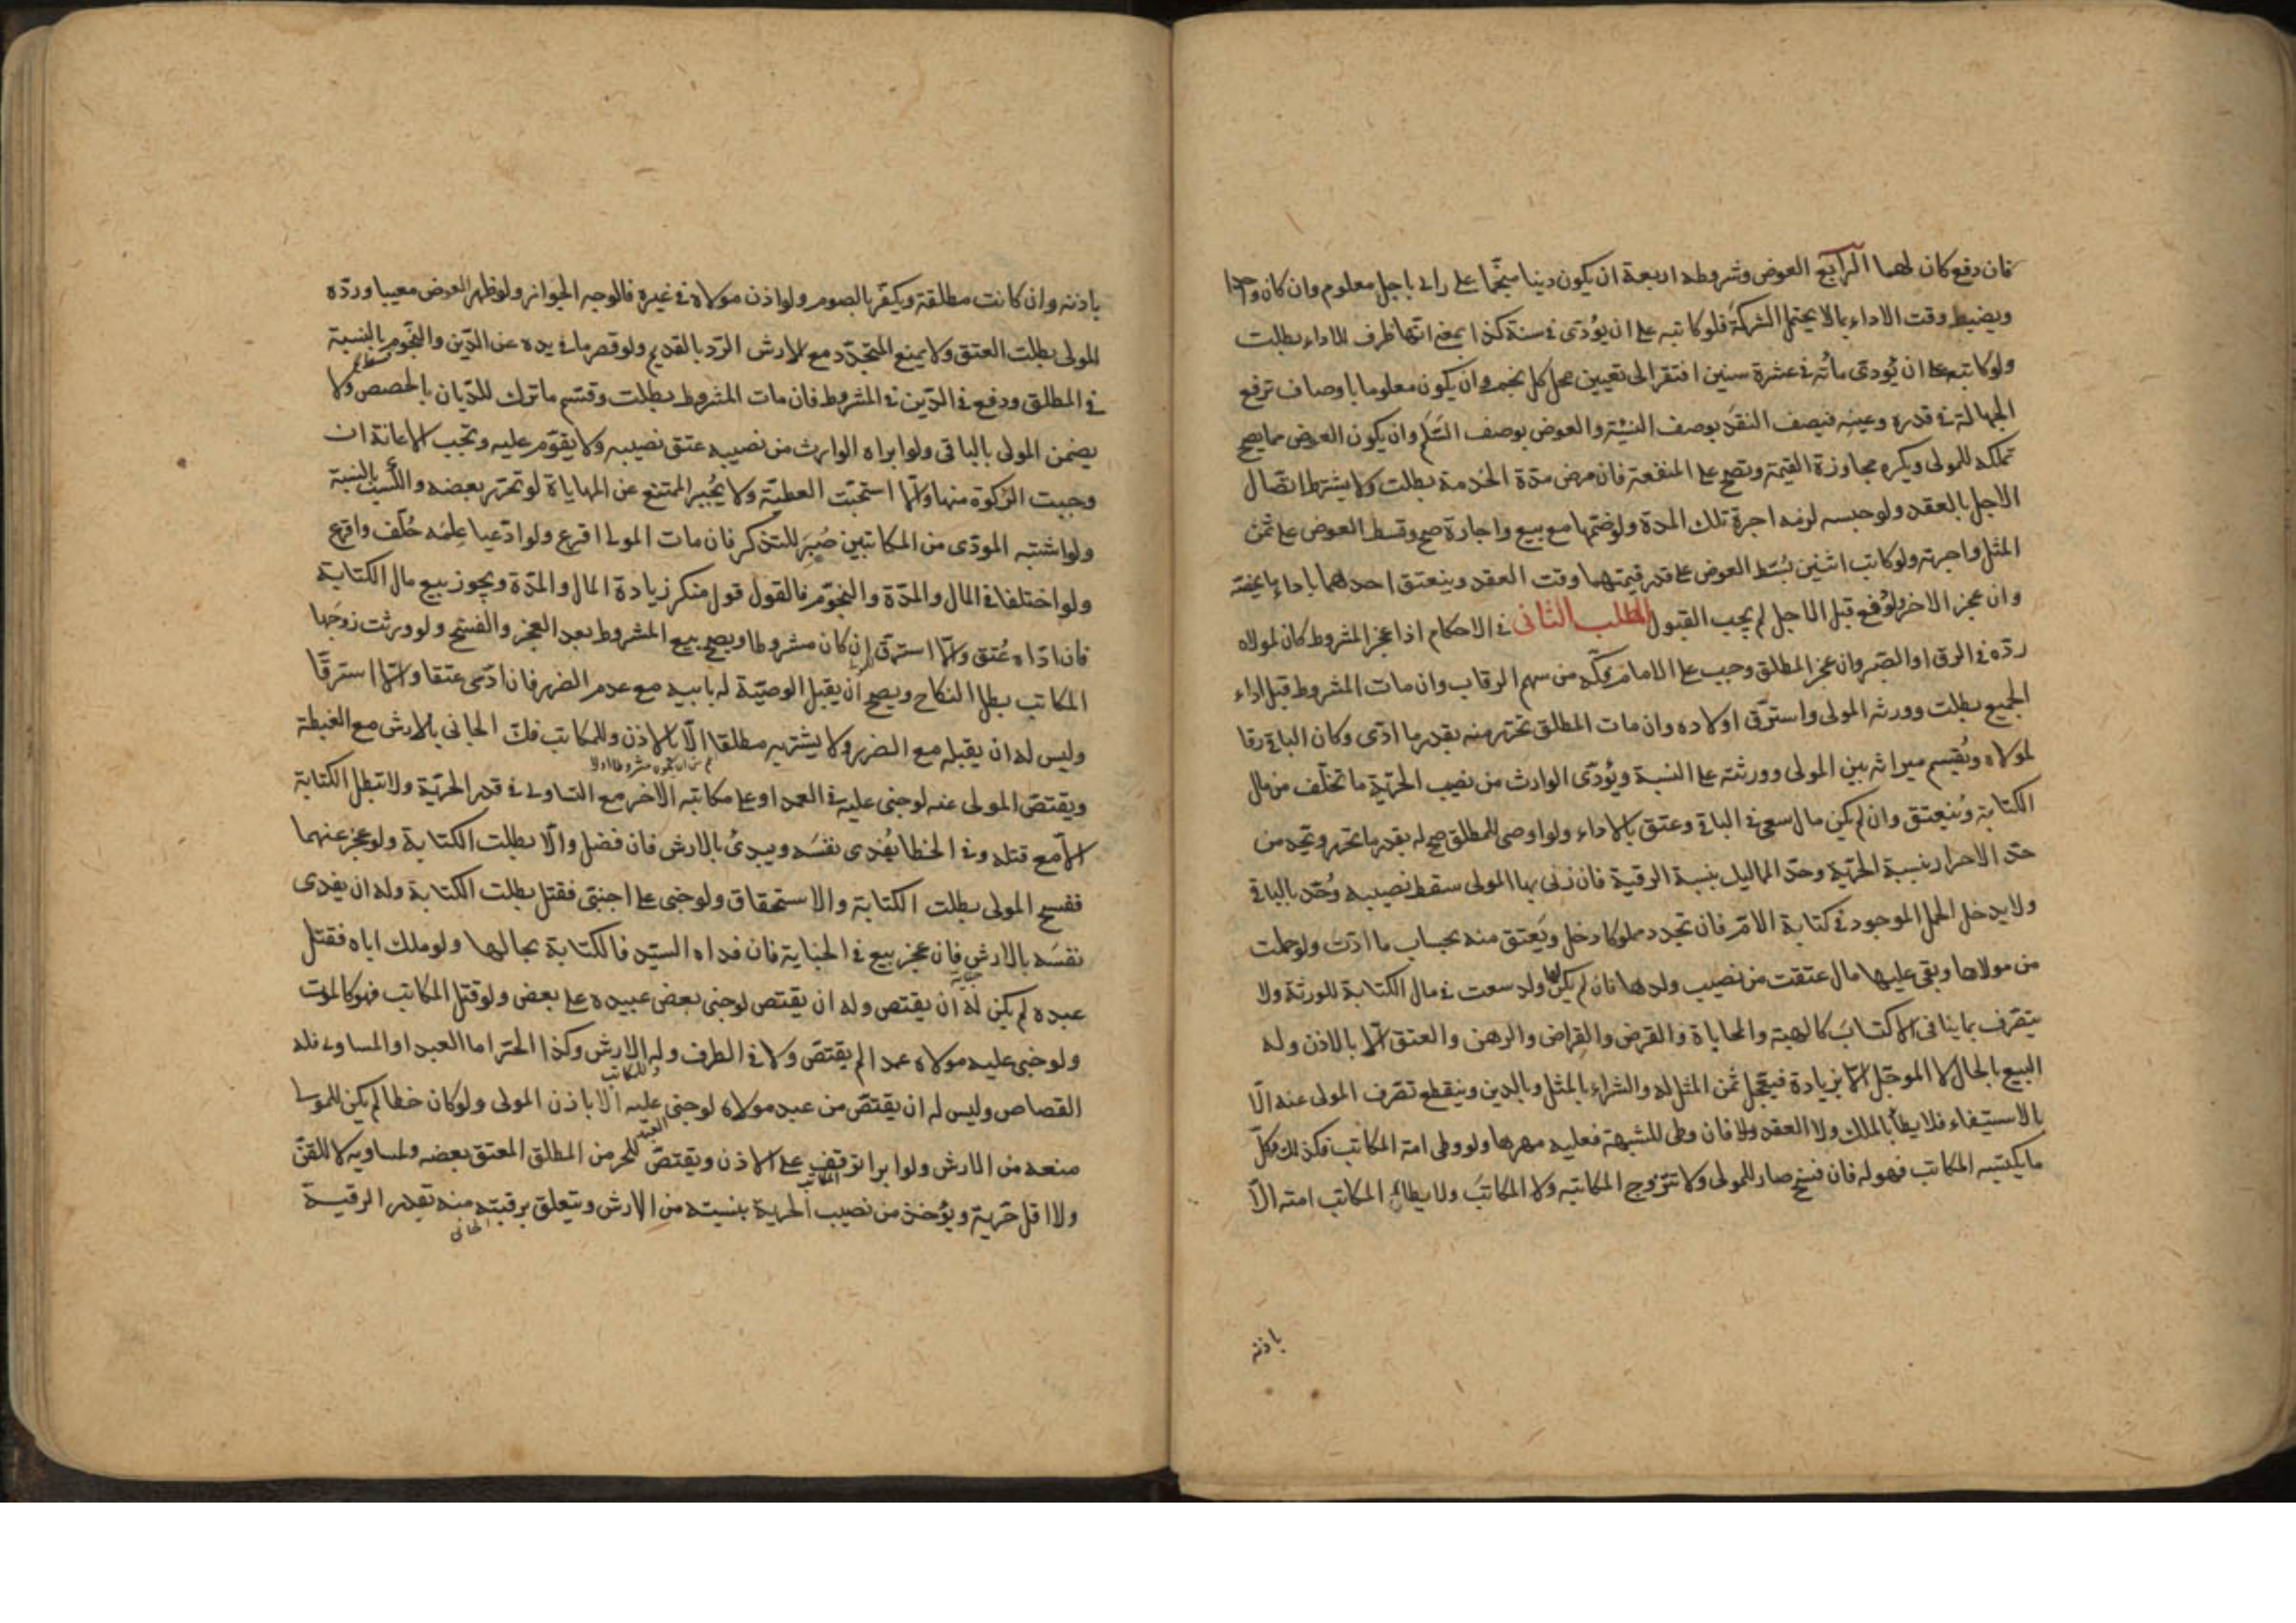 فان دفع كان لهما الرابع العوض وشروطه اربعة ان يكون دينا منجما على راى باجل معلوم وان كان واحدا
ويضبط وقت الاداء بما لا يحتمل الشركة فلو كاتبه على ان يؤدى فى سنة كذا بمعنى انها ظرف للاداء بطلت
ولو كاتبه على ان يؤدى مائة فى عشرة سنين افتقر الى تعيين محل كل نجم وان يكون معلوما باوصاف ترفع
الجهالة فى قدره وعينه فيصف النقد بوصف النسيئة والعوض بوصف السلم وان يكون العوض مما يصح
تملكه للمولى ويكره مجاوزة القيمة وتصح على المنفعة فان مرض مدة الخدمة بطلت ولا يشترط اتصال
الاجل بالعقد ولو حبسه لزمه اجرة تلك المدة ولو ضمها مع بيع واجارة صح وقسط العوض على ثمن
المثل واجرته ولو كاتب اثنين بسّط العوض على قدر قيمتهما وقت العقد وينعتق احدهما باداء ما يخصه
وان عجز الاخر ولو دفع قبل الاجل لم يجب القبول المطلب الثانى فى الاحكام اذا عجز المشروط كان لمولاه
ردّه فى الرق او الصبر وان عجز المطلق وجب على الامام فكّه من سهم الرقاب وان مات المشروط قبل اداء
الجميع بطلت وورثه المولى واسترق اولاده وان مات المطلق تحرر منه بقدر ما ادّى وكان الباقى رقا
لمولاه ويُقسم ميراثه بين المولى وورثته على النسبة ويُؤدّى الوارث من نصيب الحرّية ما تخلّف من مال
الكتابة وينعتق وان لم يكن مال سعى فى الباقى وعتق بالاداء ولو اوصى للمطلق صح له بقدر ما تحرر ويحد من
حدّ الاحرار بنسبة الحرّية وحدّ المماليك بنسبة الرقية فان زنى بها المولى سقط نصيبه وحُدّ بالباقى
ولا يدخل الحمل الموجود فى كتابة الام فان تجدد مملوكا دخل ويعتق منه بحساب ما ادّت ولو حملت
من مولاها وبقى عليها مال عتقت من نصيب ولدها فان لم يكن لها ولد سعت فى مال الكتابة للورثة ولا
يتصرف بما ينافى الاكتساب كالهبة والمحاباة والقرض والقراض والرهن والعتق الّا بالاذن وله
البيع بالحال لا المؤجّل الّا بزيادة فيعجّل ثمن المثل له والشراء بالمثل وبالدين وينقطع تصرف المولى عنه الّا
بالاستيفاء فلا يطأ بالملك ولا العقد ولا فان وطى للشبهة فعليه مهرها ولو وطى امة المكاتب فكذلك وكلّ
ما يكتسبه المكاتب فهو له فان فسخ صار للمولى ولا تتزوج المكاتبه ولا المكاتب ولا يطأ المكاتب امته الّا
باذنه
باذنه وان كانت مطلقة ويكفّر بالصوم ولو اذن مولاه فى غيره فالوجه الجواز ولو ظهر العوض معيبا وردّه
المولى بطلت العتق ولا يمنع المتجدّد مع الارش الردّ بالقديم ولو قصر ما فى يده عن الدّين والنّجوم بالنسبة
فى المطلق ودفع فى الدّين فى المشروط فان مات المشروط بطلت وقسّم ما ترك للديان بالحصص ولا
يضمن المولى بالباقى ولو ابراه الوارث من نصيبه عتق نصيبه ولا يقوّم عليه وتجب الاعانة ان
وجبت الزكوة منها والّا استحبّت العطيّة ولا يُجبر الممتنع عن المهاياة لو تحرّر بعضه والكسب بالنسبة
ولو اشتبه المودّى من المكاتبين صُبِر للتذكر فان مات المولى اقرع ولو ادّعيا علمه حُلّف واقرع
ولو اختلفا فى المال والمدّة والنجوم فالقول قول منكر زيادة المال والمدّة ويجوز بيع مال الكتابة
فان ادّاه عُتق والّا استرق ان كان مشروطا ويصح بيع المشروط بعد العجز والفسخ ولو ورثت زوجها
المكاتب بطل النكاح ويصح ان يقبل الوصيّة له بابيه مع عدم الضرر فان ادّى عتقا والّا استرقّا
وليس له ان يقبله مع الضرر ولا يشتريه مطلقا الّا بالاذن وللمكاتب فك الجانى بالارش مع الغبطة
ويقتص المولى عنه لو جنى عليه فى العمد او على مكاتبه الاخر مع التساوى فى قدر الحرّية ولا تبطل الكتابة
الّا مع قتله وفى الخطا يُفدى نفسه ويبدئ بالارش فان فضل والّا بطلت الكتابة ولو عجز عنهما
ففسخ المولى بطلت الكتابة والاستحقاق ولو جنى على اجنبى فقتل بطلت الكتابة وله ان يفدى
نفسه بالارش فان عجز بيع فى الجناية فان فداه السيّد فالكتابة بحالها ولو ملك اباه فقتل
عبده لم يكن له ان يقتص وله ان يقتص لو جنى بعض عبيده على بعض ولو قتل المكاتب فهو كالموت
ولو جنى عليه مولاه عمدا لم يقتصّ ولا فى الطرف وله الارش وكذا الحرّ اما العبد او المساوى فله
القصاص وليس له ان يقتصّ من عبد مولاه لو جنى عليه الّا باذن المولى ولو كان خطا لم يكن للمولى
منعه من الارش ولو ابرا توقف على الاذن ويقتصّ للحر من المطلق المعتق بعضه ولمساويه لا للقنّ
ولا اقل حرّية ويؤخذ من نصيب الحرية بنسبته من الارش ويتعلق برقبته منه بقدر الرقية